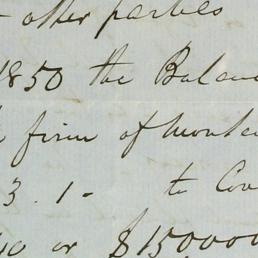 - other parties
1850 the Balan
firm of
3. 1 - to Cov
or $150000